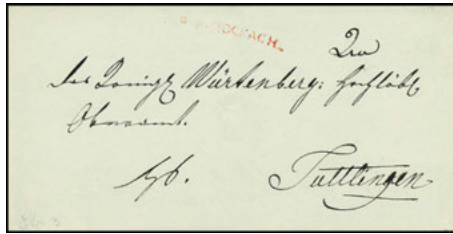 STOCKACH.
An
das Königl Würtenberg: Hochlöbl
Oberamt.
Tuttlingen